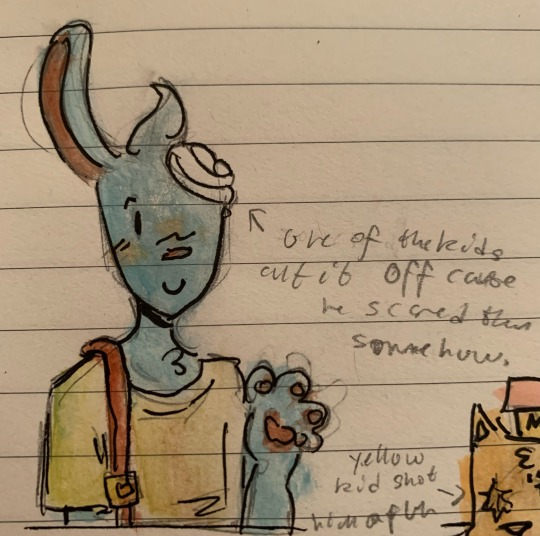 one of the kids
cut it off cause
he scared them
somehow.
yellow
kid shot
him